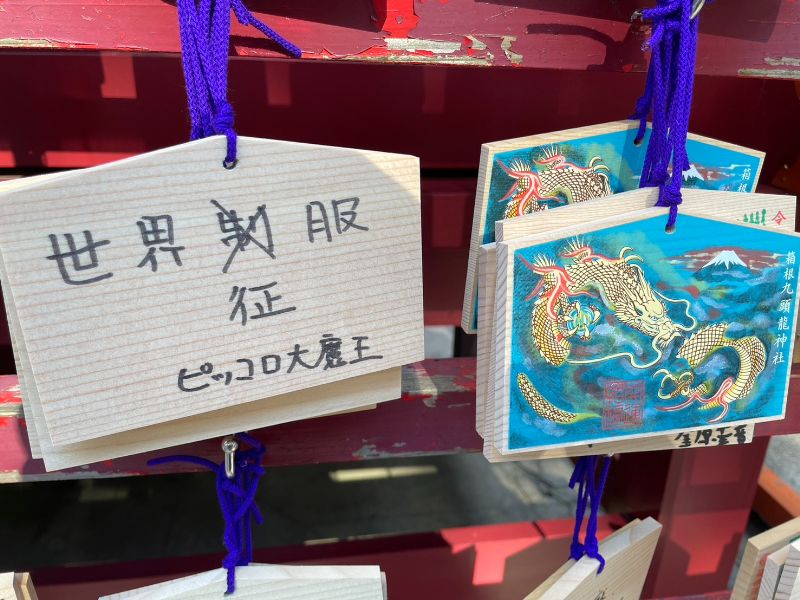 世界制服
征
ピッコロ大魔王
箱根
令
箱根九頭龍神社